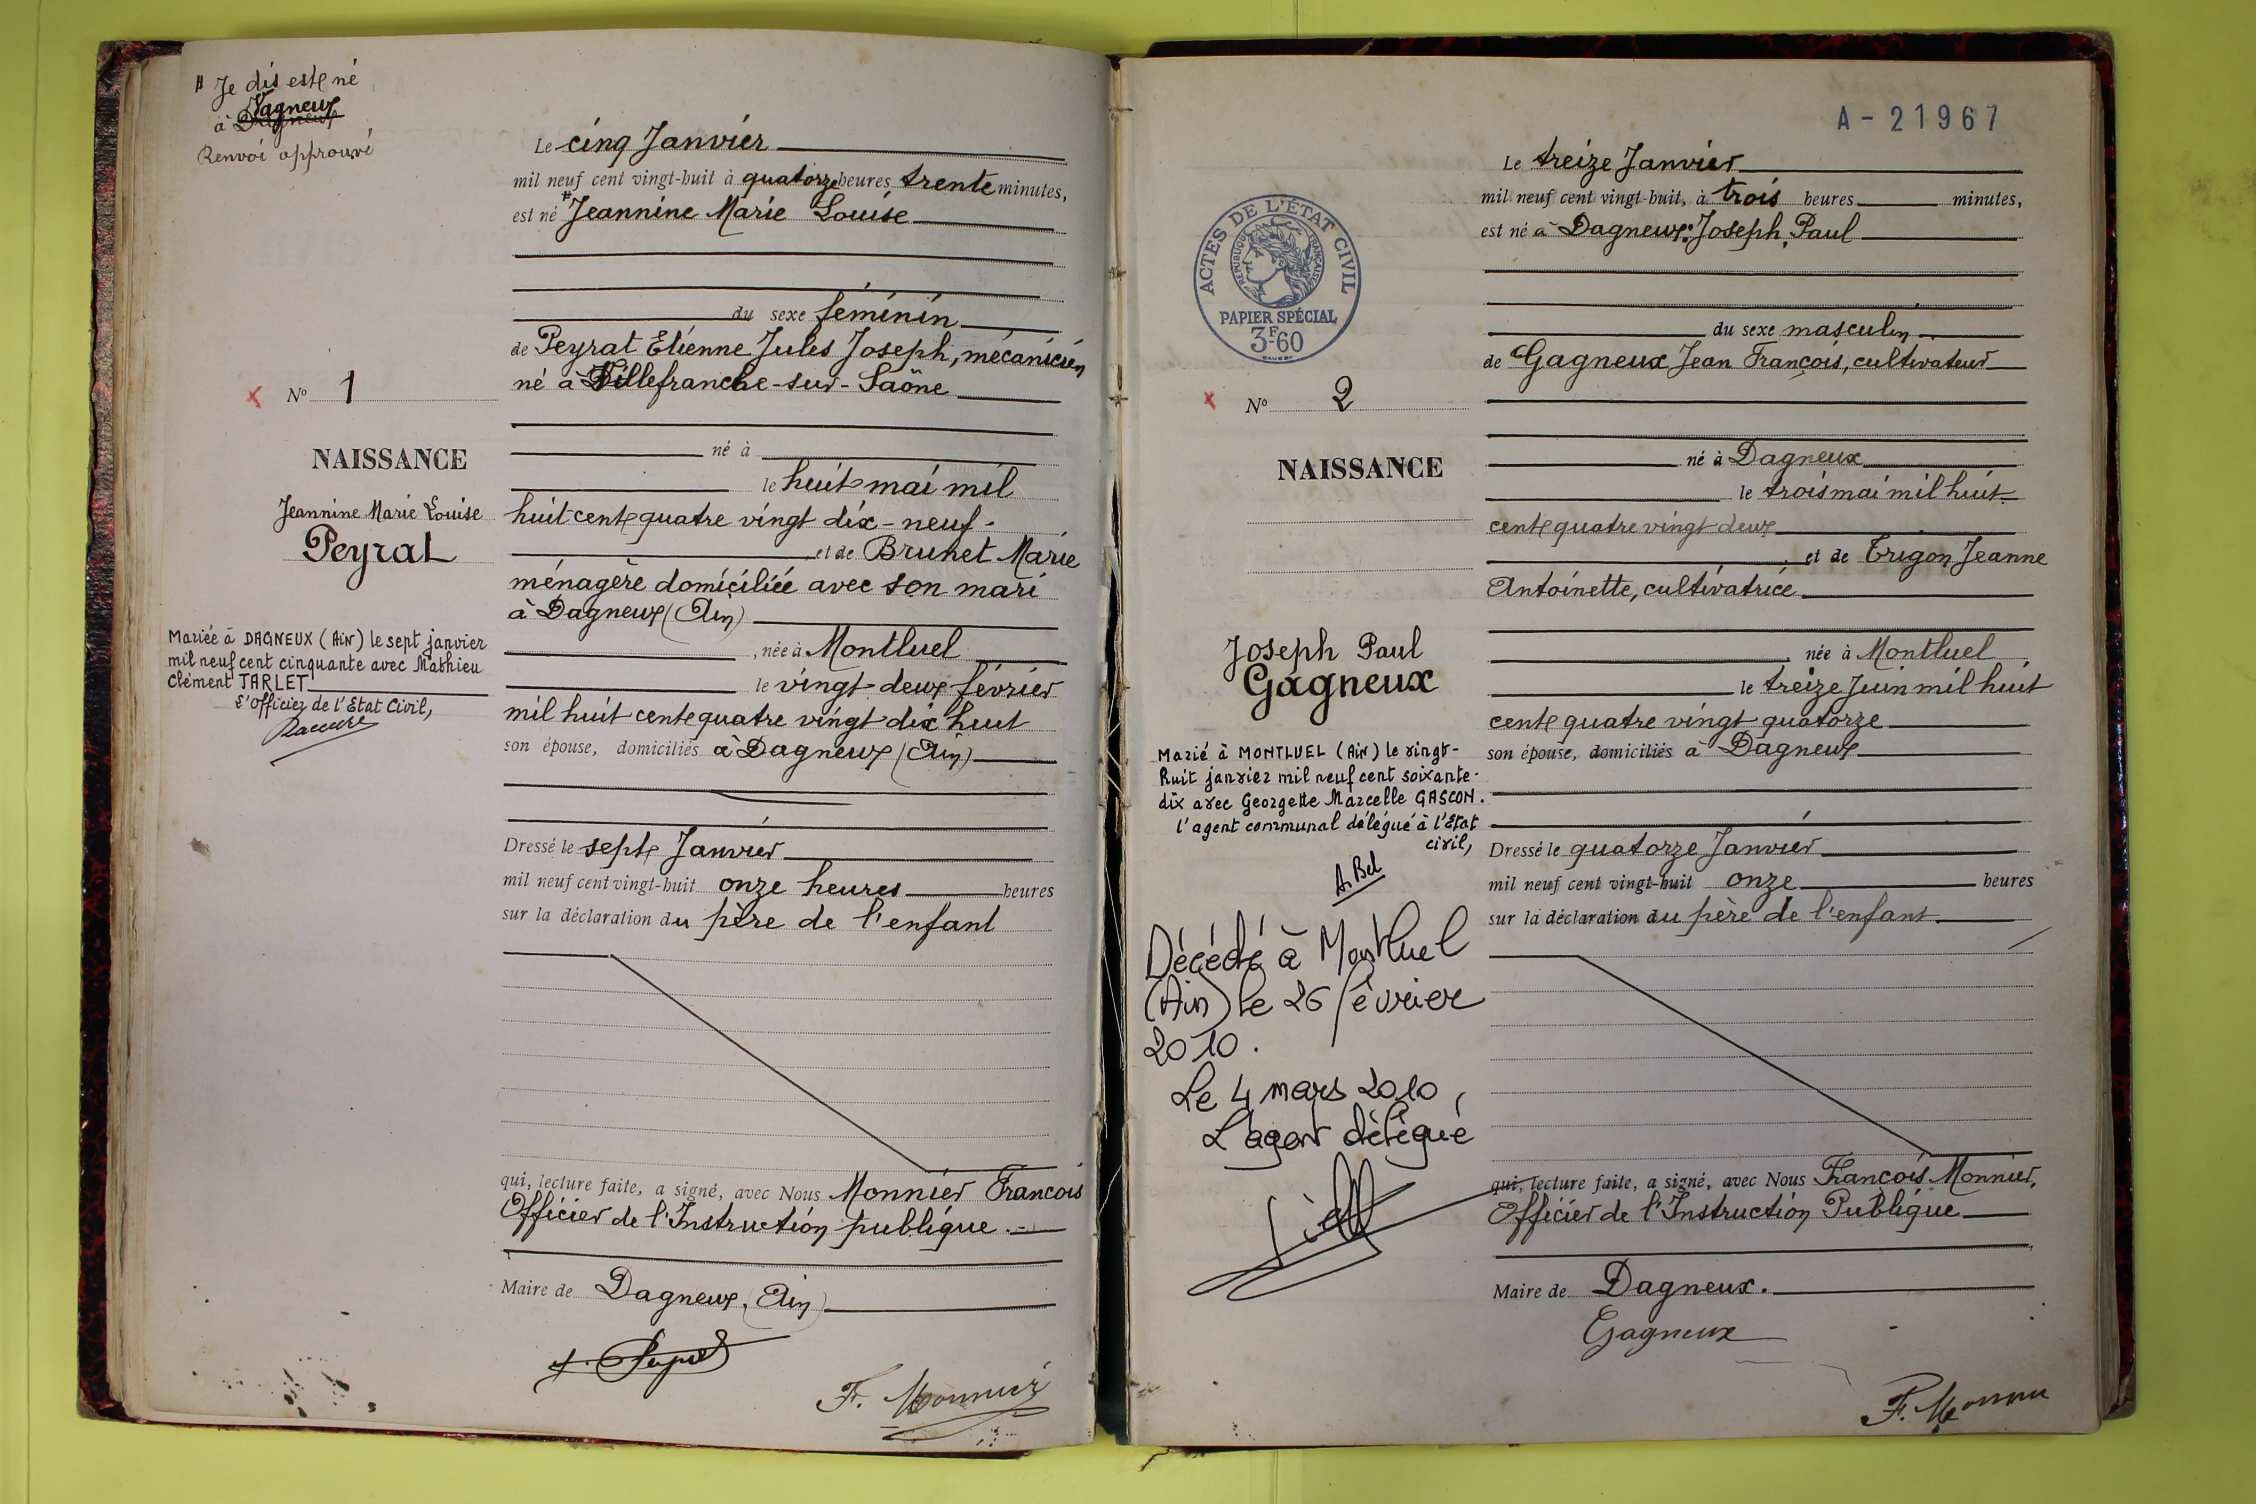 # Je dis este né
Dagneux
à Dagneux
Renvoi approuvé
Le cinq Janvier
mil neuf cent vingt-huit à quatorze heures trente minutes,
est né # Jeannine Marie Louise
du sexe féminin
de Peyrat Etienne Jules Joseph, mécanicien
né à Villefranche-sur-Saône
N° 1
né à
NAISSANCE
le huit mai mil
Jeannine Marie Louise
huit cent quatre vingt dix-neuf-
Peyrat
et de Brunet Marie
ménagère domiciliée avec son mari
à Dagneux (Ain)
Mariée à DAGNEUX (Ain) le sept janvier
mil neuf cent cinquante avec Mathieu
Clément TARLET
L'Officier de l'Etat Civil,
, née à Montluel
le vingt-deux février
mil huit cent quatre vingt dix huit
son épouse, domiciliés à Dagneux (Ain)
Dressé le sept Janvier
mil neuf cent vingt-huit onze heures heures
sur la déclaration du père de l'enfant
qui, lecture faite, a signé, avec Nous Monnier Francois
Officier de l'Instruction publique.-
Maire de Dagneux, (Ain)
F. Monnier
A-21967
Le treize Janvier
mil neuf cent vingt-huit, à trois heures minutes,
est né à Dagneux: Joseph, Paul
ACTES DE L'ÉTAT CIVIL
RÉPUBLIQUE FRANÇAISE
PAPIER SPÉCIAL
3F.60
du sexe masculin
de Gagneux Jean François, cultivateur
N° 2
né à Dagneux
NAISSANCE
le trois mai mil huit
cent quatre vingt deux
et de Trigon Jeanne
Antoinette, cultivatrice
Joseph Paul
Gagneux
née à Montluel
le treize Juin mil huit
cent quatre vingt quatorze
son épouse, domiciliés à Dagneux
Marié à MONTLUEL (Ain) le vingt-
huit janvier mil neuf cent soixante-
dix avec Georgette Marcelle GASCON.
l'agent communal délégué à l'Etat
civil,
A. Bel
Dressé le quatorze Janvier
mil neuf cent vingt-huit onze heures
sur la déclaration du père de l'enfant
Décédé à Montluel
(Ain) le 26 février
2010.
Le 4 mars 2010,
L'agent délégué
qui, lecture faite, a signé, avec Nous François Monnier,
Officier de l'Instruction Publique
Maire de Dagneux.
Gagneux
F. Monnier